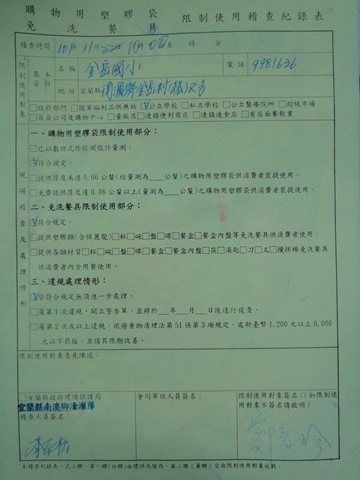 購物用塑膠袋
免洗餐具 限制使用稽查紀錄表
稽查時間 10月 時 分至 時 分
限制使用對象 基本資料 名稱 金岳國小 電話 9981636
地址 宜蘭縣南澳鄉金岳村
□政府部門 □國軍福利品供應站 ☑公立學校 □私立學校 □公立醫療院所 □超級市場
□百貨公司及購物中心 □量販店 □連鎖便利商店 □連鎖速食店 □有店面餐飲業
現場稽查及處理情形
一、購物用塑膠袋限制使用部分:
□已以數位式符檢測儀計量測。
☑符合規定。
□提供厚度未達0.06公釐(經量測為 公釐)之購物用塑膠袋供消費者裝提使用。
□免費提供厚度達0.06公釐以上(量測為 公釐)之購物用塑膠袋供消費者裝提使用。
二、免洗餐具限制使用部分:
☑符合規定。
□提供塑膠類(含保麗龍)□杯□碗□盤□碟□餐盒□餐盒內盤等免洗餐具供消費者使用。
□提供各類材質□杯□碗□盤□碟□餐盒□餐盒內盤□筷□湯匙□刀□叉□攪拌棒免洗餐具
供消費者內食用餐使用。
三、違規處理情形:
☑符合規定無須進一步處理。
□屬第1次違規,開立警告單,並將於 年 月 日後進行複查。
□屬第2次或以上違規,依廢棄物清理法第51條第3項規定,處新臺幣1,200元以上6,000
元以下罰鍰,並請其限期改善。
限制使用對象意見陳述:
□宜蘭縣政府環境保護局
宜蘭縣南澳鄉清潔隊
稽查人員簽名:
會同單位人員簽名:
限制使用對象簽名:(如限制使用
對象不簽名請敘明)
本稽查紀錄表一式二聯,第一聯(白聯)由環保局留存,第二聯(黃聯)交由限制使用對象收執。